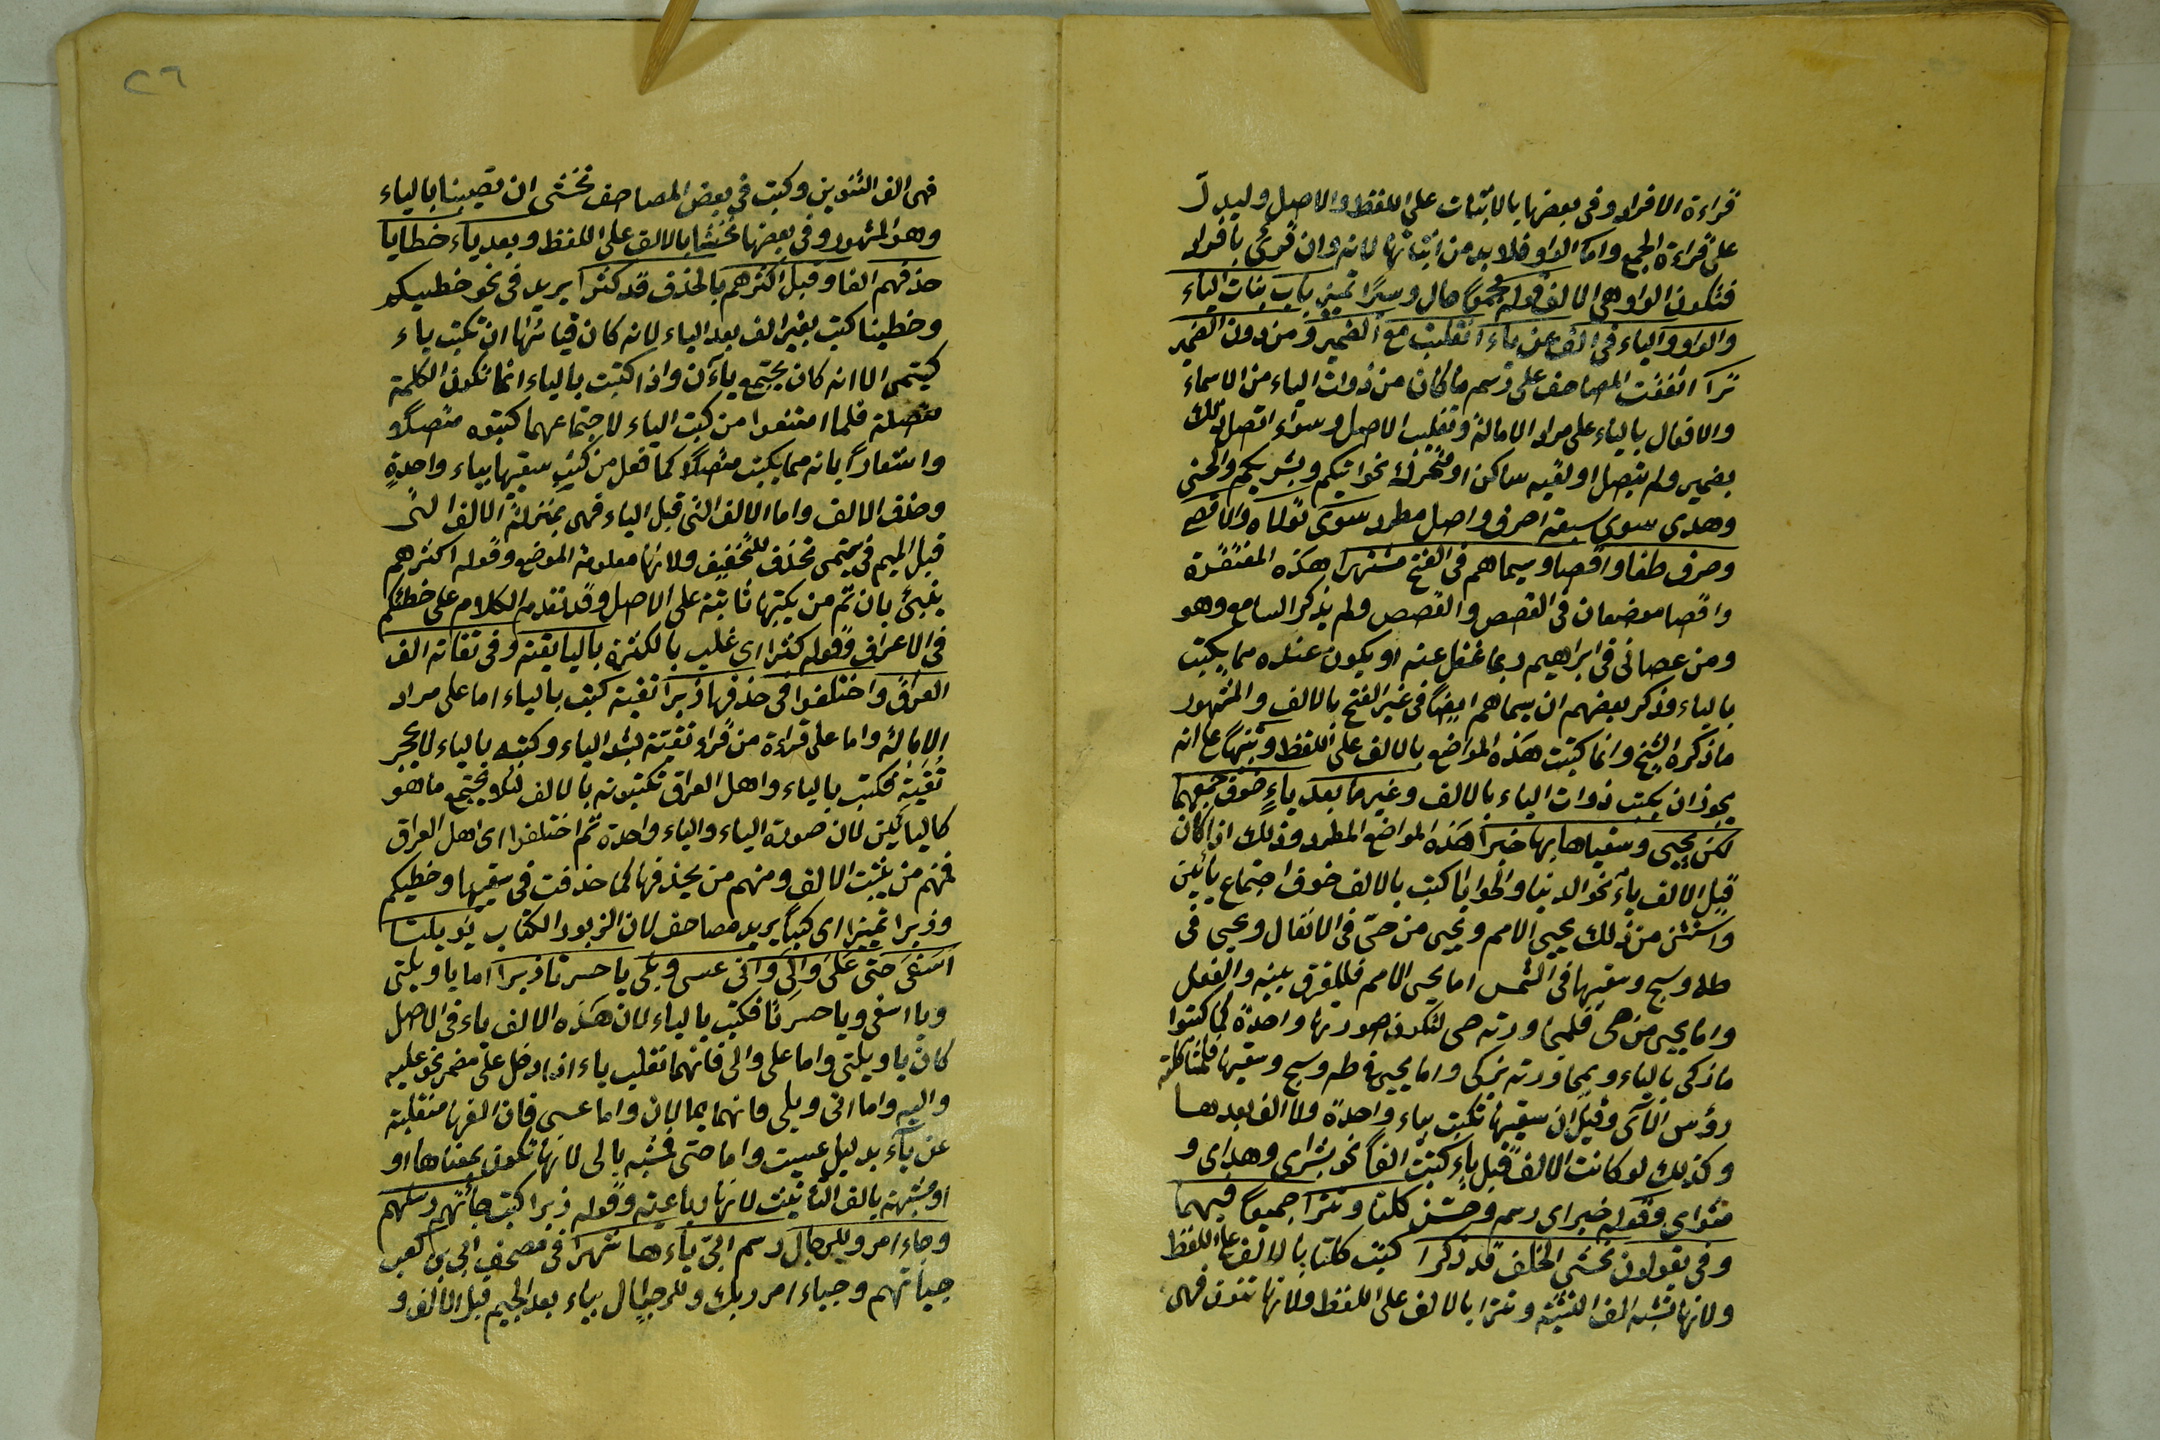 قراءة الافراد وفى بعضها بالاثبات على اللفظ والاصل وليدلّ
على قراءة الجمع واما الواو فلا بد من اثباتها لانه وان قرئ بافراد
فتكون الواو هى الالف قوله مجموعًا حال وسرًا تمييز باب بنات الياء
والواو والياء فى الف عن ياء انقلبت مع الضمير ومن دون الضمير
ترا اتفقت المصاحف على رسم ما كان من ذوات الياء من الاسماء
والافعال بالياء على مراد الامالة وتغليب الاصل وسواء اتصل ذلك
بضمير ولم يتصل او لقيه ساكن او متحرك نحو اتيكم وبشريكم والحسنى
وهدى سوى سبعة احرف واصل مطرد سوى تولاه والاقصى
وحرف طغا واقصا وسيماهم فى الفتح مشتهرا هذه المفتقرة
واقصا موضعان فى القصص والقصص ولم يذكر السابع وهو
ومن عصانى فى ابراهيم ربما غفل عنه او يكون عنده مما يكتب
بالياء وذكر بعضهم ان سيماهم ايضًا فى غير الفتح بالالف والمشهور
ما ذكره الشيخ وانما كتبت هذه المواضع بالالف على اللفظ وتنبيهًا على انه
يجوز ان يكتب ذوات الياء بالالف وغير ما بعد ياءٍ خوف جمعهما
لكن يحيى وسقياها بها خبرا هذه المواضع المطرد وذلك اذا كان
قبل الالف ياء نحو الدنيا والحوايا كتب بالالف خوف اجتماع يائين
واستثنى من ذلك يحيى الامم ويحيى من حىّ فى الانفال ويحيى فى
طه وسبح وسقيها فى الشمس اما يحيى الامم فللفرق بينه والفعل
واما يحيى من حى فلمجاورته حى لتكون صورتها واحدة كما كتبوا
ما زكى بالياء ولمجاورته يزكى واما يحيى فى طه وسبح وسقيها فلمشاكلة
رؤس الآى وقيل ان سقيها تكتب بياء واحدة ولا الف بعدها
وكذلك لو كانت الالف قبل ياءٍ كتبت الفًا نحو بشراى وهداى و
مثواى وقوله خبر اى رسم وحسن كلتا وتترا جميعًا فيهما
وفى يقولون نخشى الخلف قد ذكرا كتبت كلتا بالالف على اللفظ
ولانها تشبه الف التثنية وتترا بالالف على اللفظ ولانها تنون فهى
٢٦
فهى الف التنوين وكتبت فى بعض المصاحف نخشى ان تصيبنا بالياء
وهو المشهور وفى بعضها نخشا بالالف على اللفظ وبعد ياء خطايا
حذفهم الفا وقبل اكثرهم بالحذف قد كثرا يريد فى نحو خطيـكم
وخطينا كتب بغير الف بعد الياء لانه كان قياسها ان تكتب ياء
كيتمى الا انه كان يجتمع ياءن واذا كتبت بالياء انما تكون الكلمة
متصلة فلما امتنعوا من كتب الياء لاجتماعهما كتبوه متصلًا
واشعارًا بانه مما يكتب متصلًا كما فعل من كتب سقيها بياء واحدةٍ
وحذف الالف واما الالف التى قبل الياء فهى بمنزلة الالف التى
قبل الميم فى يتمى تحذف للتخفيف ولانها معلومة الموضع وقوله اكثرهم
ينبئ بان ثم من يكتبها ثابتة على الاصل وقد تقدم الكلام على خطئتكم
فى الاعراف وقوله كثرا اى غلب بالكثرة باليا تقته وفى تقاته الف
العراق واختلفوا فى حذفها زبرا تقية كتب بالياء اما على مراد
الامالة واما على قراءة من قراء تقيّة بشد الياء وكتبه بالياء
تقيّة فكتب بالياء واهل العراق تكتبونه بالالف لئلا يجتمع ما هو
كاليائين لان صورة الياء والياء واحدة ثم اختلفوا اى اهل العراق
فمنهم من يثبت الالف ومنهم من يحذفها كما حذفت فى سقيها وخطيكم
وزبرا تمييز اى كتبًا يريد مصاحف لان الزبور الكتاب يويلتا
اسفى حتى على والى وانى عسى وبلى يا حسرتا زبرا اما يا ويلتى
ويا اسفى ويا حسرتا فكتب بالياء لان هذه الالف ياء فى الاصل
كان يا ويلتى واما على والى فانهما تقلب ياء اذا دخل على مضمر نحو عليه
واليه واما انى وبلى فانهما يمالان واما عسى فان الفها منقلبة
عن ياء بدليل عسيت واما حتى فشبه بالى لانها تكون بمعناها او
او مشبهة بالف التأنيث لانها رباعية وقوله زبرا كتب جاءتهم رسلهم
وجاء امر وللرجال رسم ابىّ ياءها شهرا فى مصحف ابى بن كعب
جياتهم وجياء امر ربك وللرجيال بياء بعد الجيم قبل الالف و